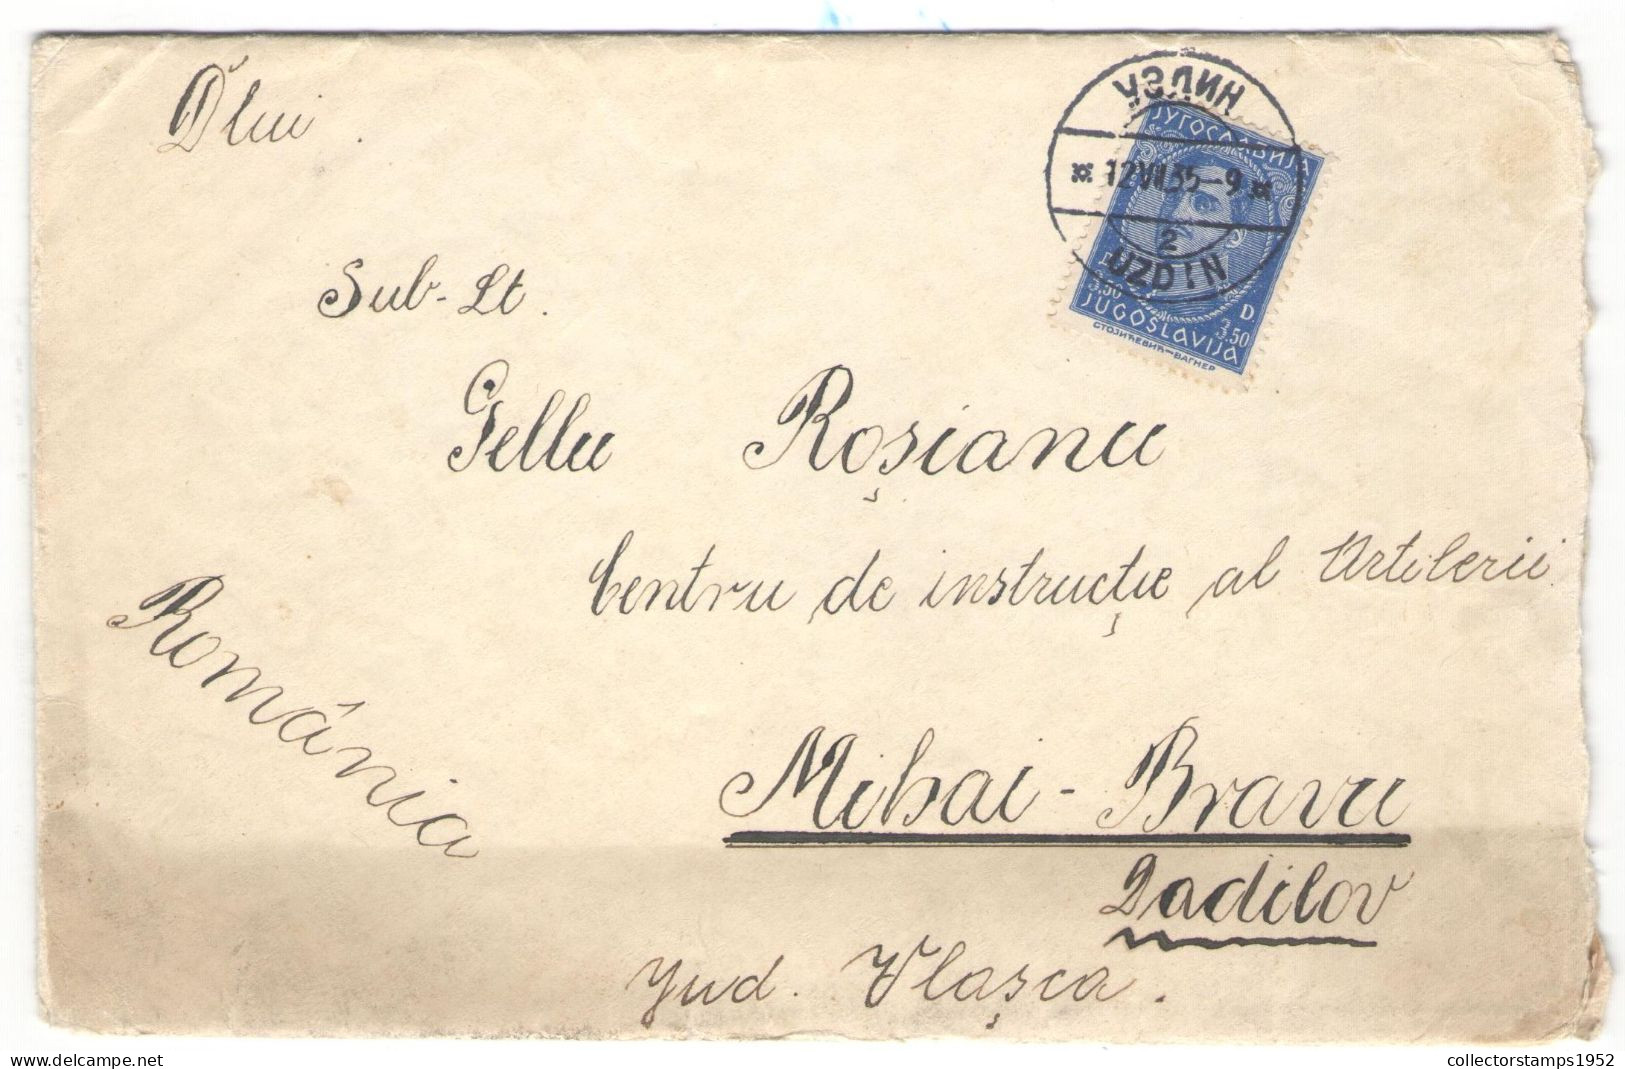 Dlui.
УЗДИН
ЈУГОСЛАВИЈА
12 VII 35-9
2
UZDIN
3.50 D. 3.50
JUGOSLAVIJA
СТОЈИЋЕВИЋ-ВАГНЕР
Sub-Lt.
Gellu Roșianu
Centru de instrucție al Artileriei
România
Mihai-Bravu
Dadilov
Jud. Vlașca.
collectorstamps1952